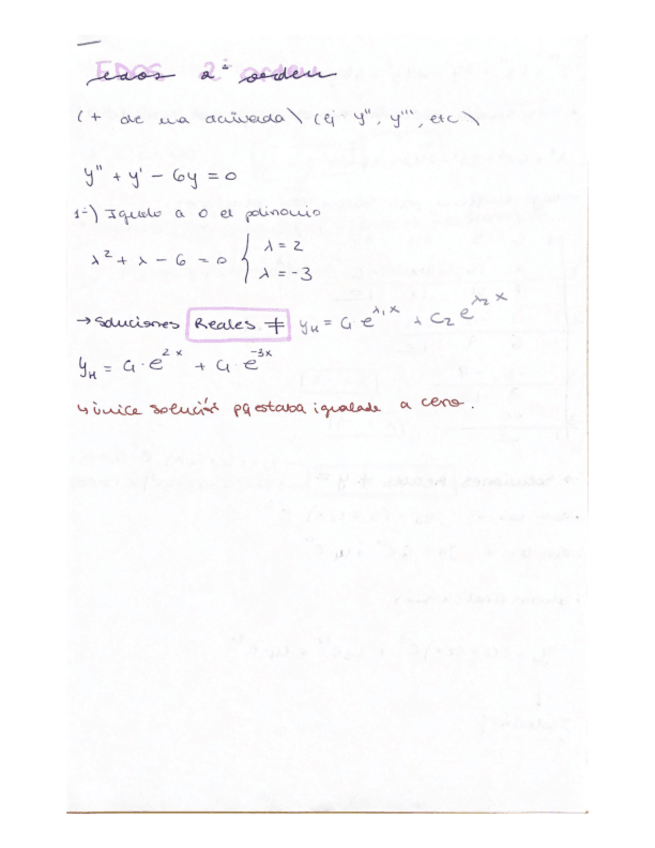 EDOS 2º orden
(+ de una derivada) (ej y'', y''', etc)
y'' + y' - 6y = 0
1º) Igualo a 0 el polinomio
λ² + λ - 6 = 0 { λ = 2
λ = -3
→ soluciones Reales ≠ y_H = C₁ e^{λ₁ x} + C₂ e^{λ₂ x}
y_H = C₁ · e^{2x} + C₁ · e^{-3x}
↳ única solución pq estaba igualada a cero.